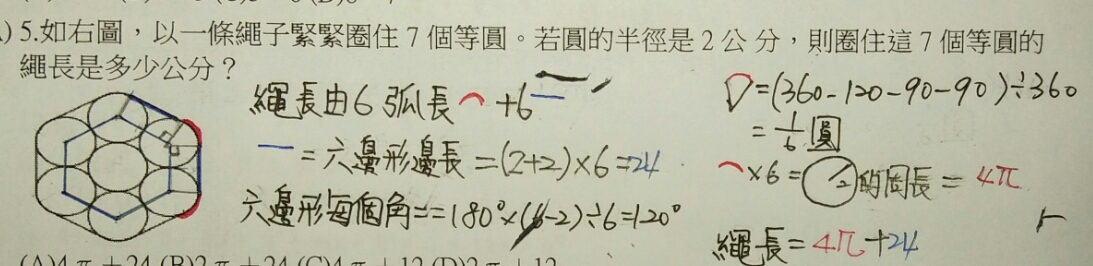 5.如右圖，以一條繩子緊緊圈住 7 個等圓。若圓的半徑是 2 公 分，則圈住這 7 個等圓的
繩長是多少公分？
繩長由6弧長⌒+6—
— = 六邊形邊長 = (2+2)×6=24
六邊形每個角==180°×(6-2)÷6=120°
=(360-120-90-90)÷360
= 1/6 圓
⌒×6 = 2 的周長 = 4π
繩長 = 4π+24
(A)4π+24 (B)2π+24 (C)4π+12 (D)2π+12